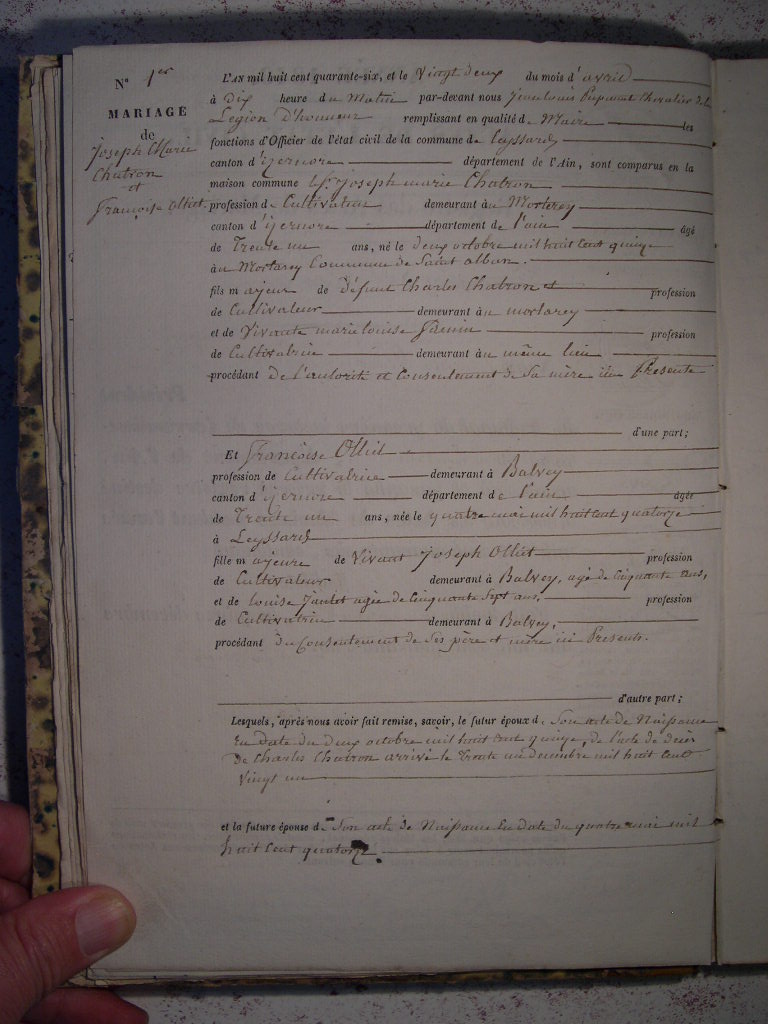 N° 1er
MARIAGE
de
Joseph Marie
Chatron
et
Françoise Olliet.
L'AN mil huit cent quarante-six, et le Vingt deux du mois d'avril
à Dix heure du Matin par-devant nous Jean Louis Chevalier de la
Légion D'honneur remplissant en qualité de Maire les
fonctions d'Officier de l'état civil de la commune de Leyssard
canton d'izernore département de l'Ain, sont comparus en la
maison commune Sr. Joseph marie Chatron
profession de Cultivateur demeurant à Mortarey
canton d'izernore département de l'ain âgé
de Trente un ans, né le deux octobre mil huit cent quinze
à Mortarey Commune de Saint alban.
fils majeur de Défunt Charles Chatron et profession
de Cultivateur demeurant à mortarey
et de Vivante marie louise profession
de Cultivatrice demeurant au même lieu
procédant De l'autorité et Consentement de Sa mère ici Présente
d'une part;
Et Françoise Olliet
profession de Cultivatrice demeurant à Balvay
canton d'izernore département de l'ain âgée
de Trente un ans, née le quatre mai mil huit cent quatorze
à Leyssard
fille majeure de Vivant Joseph Olliet profession
de Cultivateur demeurant à Balvay, agé de Cinquante ans,
et de Louise agée de Cinquante Sept ans, profession
de Cultivatrice demeurant à Balvay,
procédant du Consentement de Ses père et mère ici Présents.
d'autre part;
Lesquels, après nous avoir fait remise, savoir, le futur époux de Son acte de Naissance
En Date du deux octobre mil huit cent quinze, de l'acte de décès
De Charles Chatron arrivé le Trente un décembre mil huit cent
Vingt un
et la future épouse de Son acte de Naissance En Date du quatre mai mil
huit Cent quatorze.